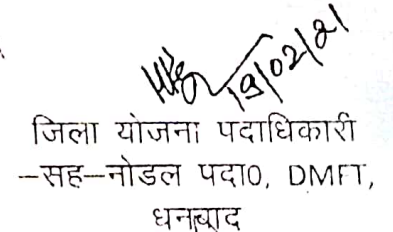 19/02/21
जिला योजना पदाधिकारी
–सह–नोडल पदा0, DMFT,
धनबाद